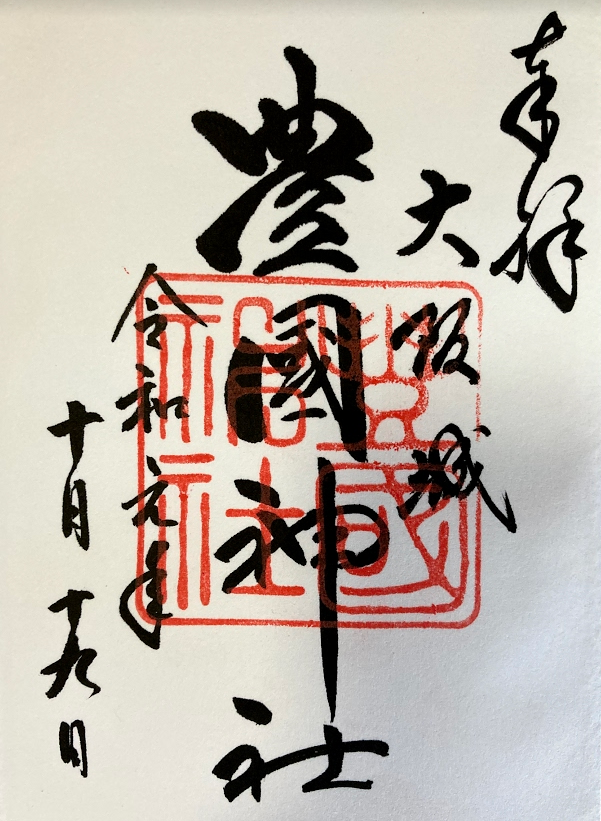 奉拝
大阪城
豊國神社
令和元年
十月十九日
豊國
神社